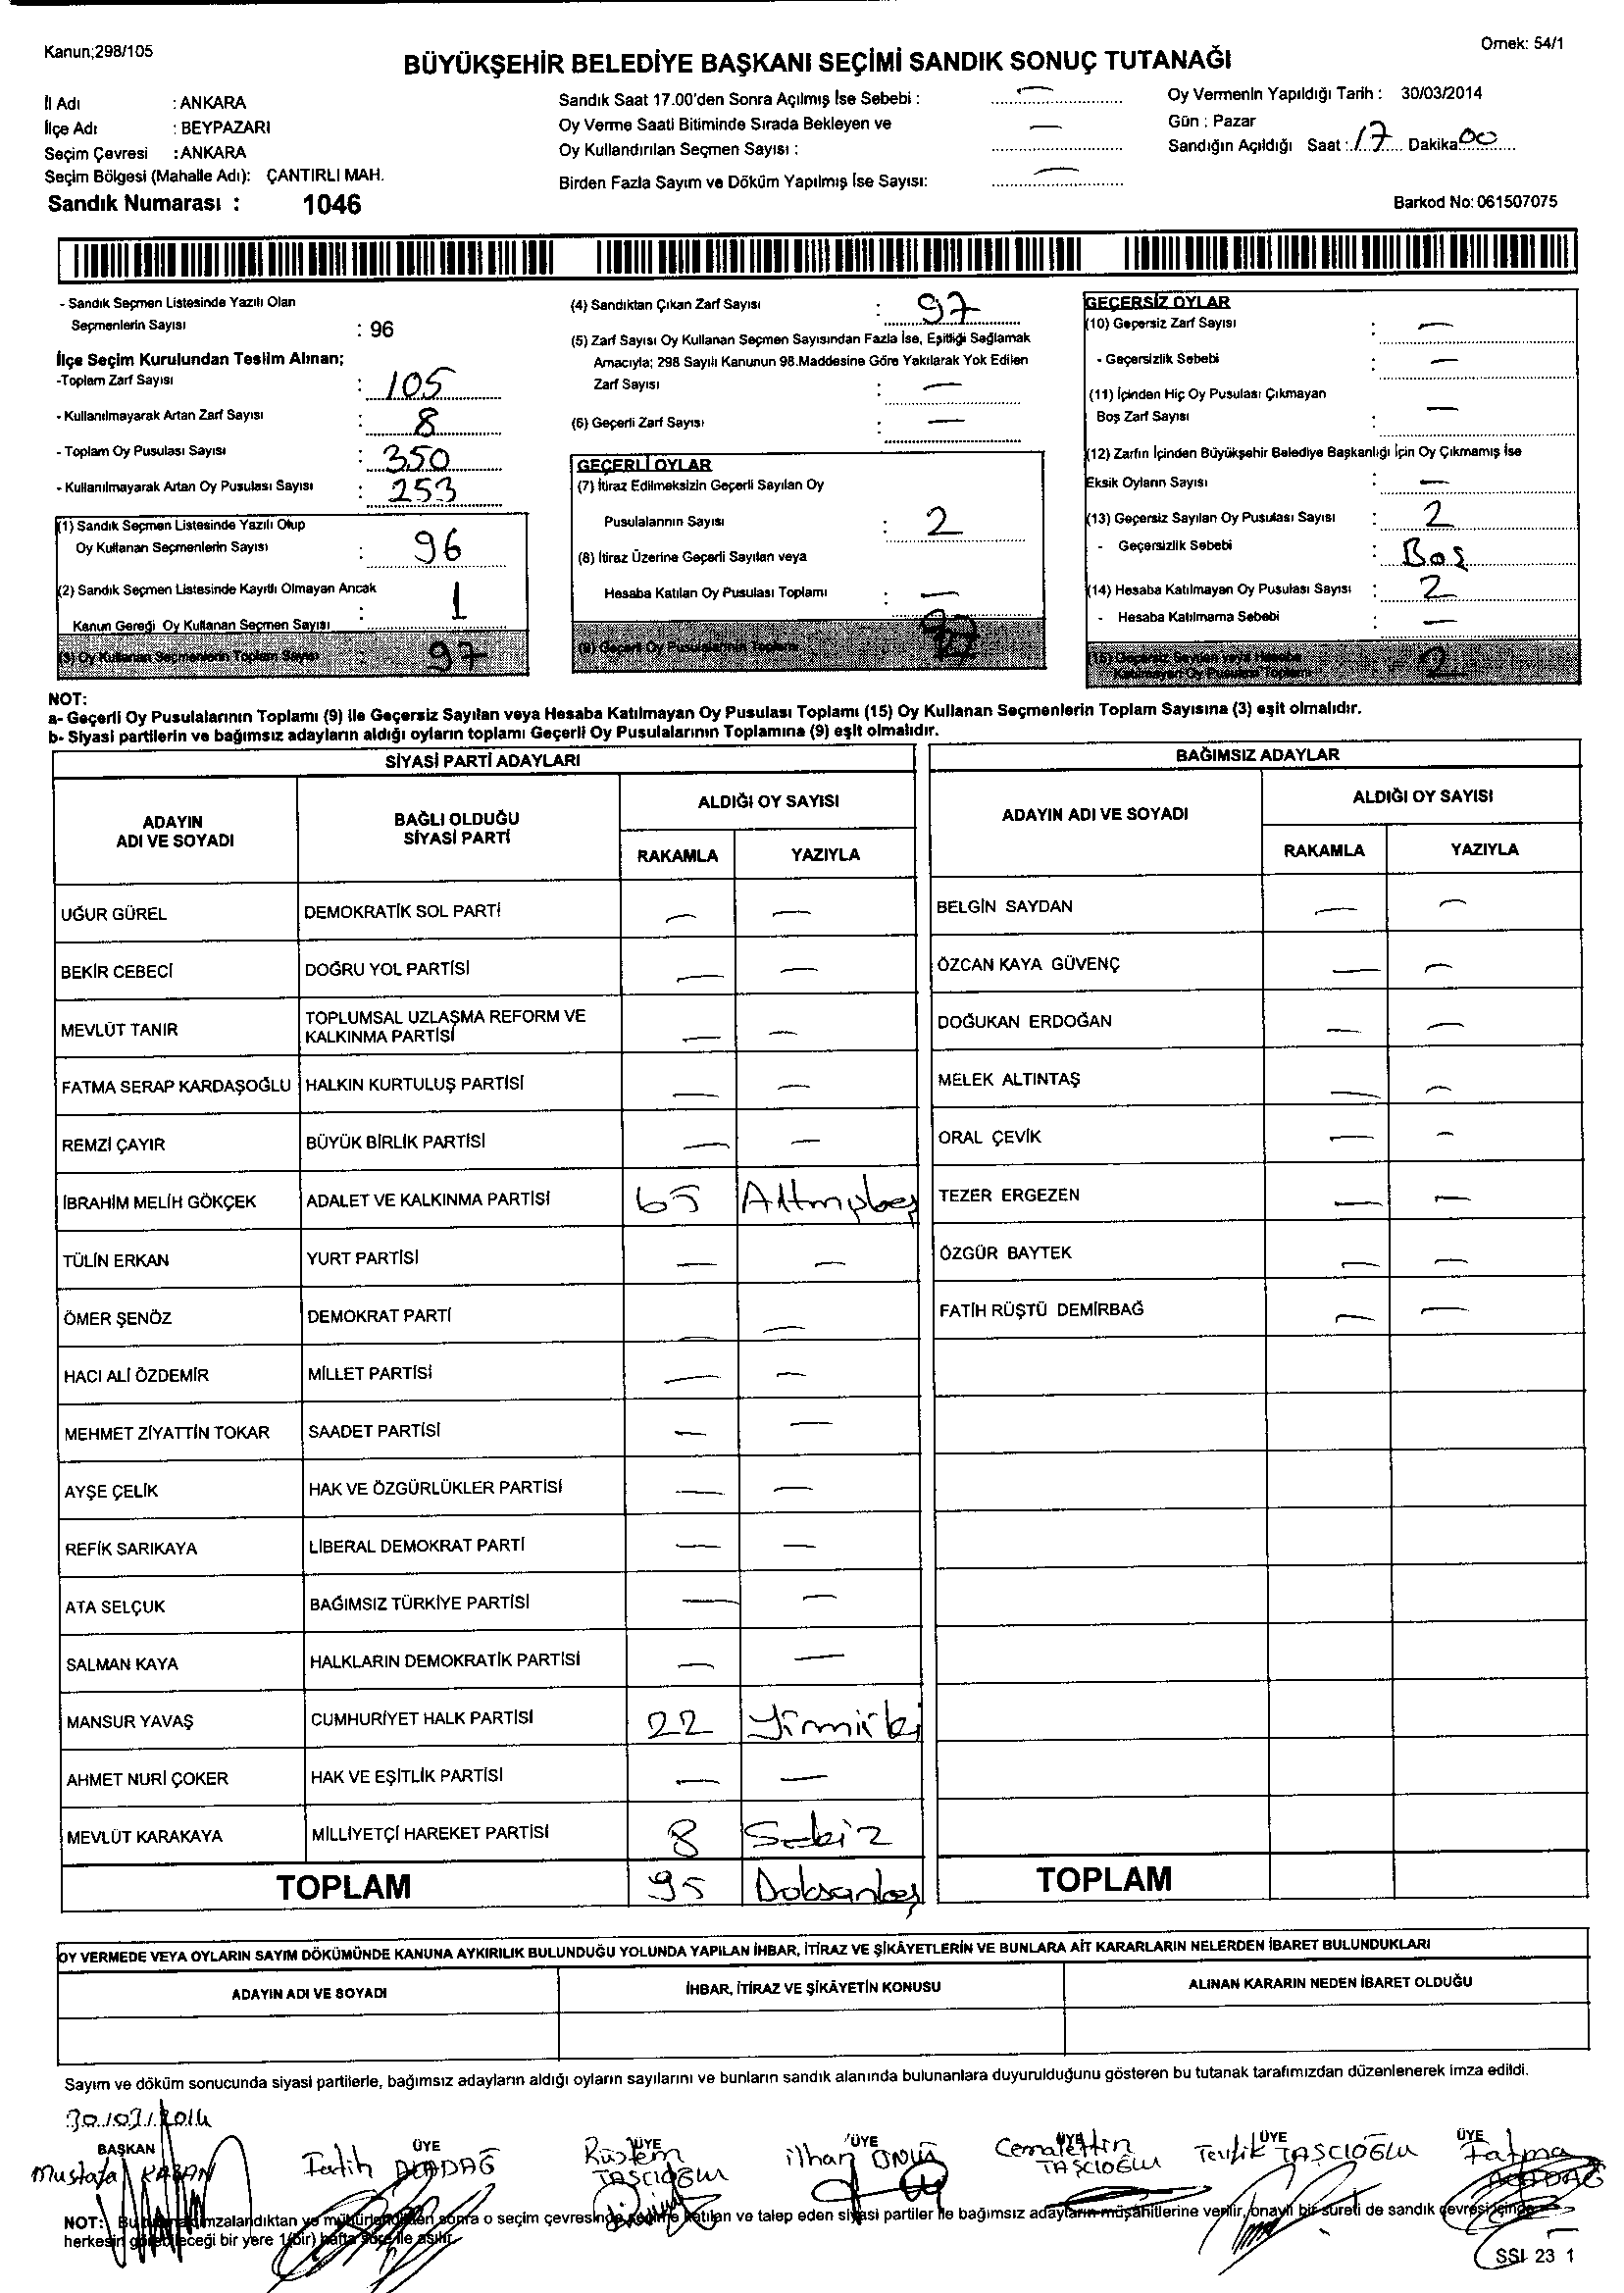 Kanun;298/105
Ornek: 54/1
BÜYÜKŞEHİR BELEDİYE BAŞKANI SEÇİMİ SANDIK SONUÇ TUTANAĞI
İl Adı : ANKARA
İlçe Adı : BEYPAZARI
Seçim Çevresi : ANKARA
Seçim Bölgesi (Mahalle Adı): ÇANTIRLI MAH.
Sandık Numarası : 1046
Sandık Saat 17.00'den Sonra Açılmış İse Sebebi : —
Oy Verme Saati Bitiminde Sırada Bekleyen ve
Oy Kullandırılan Seçmen Sayısı : —
Birden Fazla Sayım ve Döküm Yapılmış İse Sayısı: —
Oy Vermenin Yapıldığı Tarih : 30/03/2014
Gün : Pazar
Sandığın Açıldığı Saat : 17 Dakika 00
Barkod No: 061507075
- Sandık Seçmen Listesinde Yazılı Olan
Seçmenlerin Sayısı : 96
İlçe Seçim Kurulundan Teslim Alınan;
-Toplam Zarf Sayısı : 105
- Kullanılmayarak Artan Zarf Sayısı : 8
- Toplam Oy Pusulası Sayısı : 350
- Kullanılmayarak Artan Oy Pusulası Sayısı : 253
(1) Sandık Seçmen Listesinde Yazılı Olup
Oy Kullanan Seçmenlerin Sayısı : 96
(2) Sandık Seçmen Listesinde Kayıtlı Olmayan Ancak
Kanun Gereği Oy Kullanan Seçmen Sayısı : 1
(3) Oy Kullanan Seçmenlerin Toplam Sayısı : 97
(4) Sandıktan Çıkan Zarf Sayısı : 97
(5) Zarf Sayısı Oy Kullanan Seçmen Sayısından Fazla İse, Eşitliği Sağlamak
Amacıyla; 298 Sayılı Kanunun 98.Maddesine Göre Yakılarak Yok Edilen
Zarf Sayısı : —
(6) Geçerli Zarf Sayısı : —
GEÇERLİ OYLAR
(7) İtiraz Edilmeksizin Geçerli Sayılan Oy
Pusulalarının Sayısı : 2
(8) İtiraz Üzerine Geçerli Sayılan veya
Hesaba Katılan Oy Pusulası Toplamı : —
(9) Geçerli Oy Pusulalarının Toplamı :
GEÇERSİZ OYLAR
(10) Geçersiz Zarf Sayısı : —
- Geçersizlik Sebebi : —
(11) İçinden Hiç Oy Pusulası Çıkmayan
Boş Zarf Sayısı : —
(12) Zarfın İçinden Büyükşehir Belediye Başkanlığı İçin Oy Çıkmamış İse
Eksik Oyların Sayısı : —
(13) Geçersiz Sayılan Oy Pusulası Sayısı : 2
- Geçersizlik Sebebi : Boş
(14) Hesaba Katılmayan Oy Pusulası Sayısı : 2
- Hesaba Katılmama Sebebi : —
(15) Geçersiz Sayılan veya Hesaba
Katılmayan Oy Pusulası Toplamı : 2
NOT:
a- Geçerli Oy Pusulalarının Toplamı (9) ile Geçersiz Sayılan veya Hesaba Katılmayan Oy Pusulası Toplamı (15) Oy Kullanan Seçmenlerin Toplam Sayısına (3) eşit olmalıdır.
b- Siyasi partilerin ve bağımsız adayların aldığı oyların toplamı Geçerli Oy Pusulalarının Toplamına (9) eşit olmalıdır.
SİYASİ PARTİ ADAYLARI
ADAYIN ADI VE SOYADI BAĞLI OLDUĞU SİYASİ PARTİ ALDIĞI OY SAYISI
RAKAMLA YAZIYLA
UĞUR GÜREL DEMOKRATİK SOL PARTİ — —
BEKİR CEBECİ DOĞRU YOL PARTİSİ — —
MEVLÜT TANIR TOPLUMSAL UZLAŞMA REFORM VE KALKINMA PARTİSİ — —
FATMA SERAP KARDAŞOĞLU HALKIN KURTULUŞ PARTİSİ — —
REMZİ ÇAYIR BÜYÜK BİRLİK PARTİSİ — —
İBRAHİM MELİH GÖKÇEK ADALET VE KALKINMA PARTİSİ 65 Altmışbeş
TÜLİN ERKAN YURT PARTİSİ — —
ÖMER ŞENÖZ DEMOKRAT PARTİ — —
HACI ALİ ÖZDEMİR MİLLET PARTİSİ — —
MEHMET ZİYATTİN TOKAR SAADET PARTİSİ — —
AYŞE ÇELİK HAK VE ÖZGÜRLÜKLER PARTİSİ — —
REFİK SARIKAYA LİBERAL DEMOKRAT PARTİ — —
ATA SELÇUK BAĞIMSIZ TÜRKİYE PARTİSİ — —
SALMAN KAYA HALKLARIN DEMOKRATİK PARTİSİ — —
MANSUR YAVAŞ CUMHURİYET HALK PARTİSİ 22 Yirmiiki
AHMET NURİ ÇOKER HAK VE EŞİTLİK PARTİSİ — —
MEVLÜT KARAKAYA MİLLİYETÇİ HAREKET PARTİSİ 8 Sekiz
TOPLAM 95 Doksanbeş
BAĞIMSIZ ADAYLAR
ADAYIN ADI VE SOYADI ALDIĞI OY SAYISI
RAKAMLA YAZIYLA
BELGİN SAYDAN — —
ÖZCAN KAYA GÜVENÇ — —
DOĞUKAN ERDOĞAN — —
MELEK ALTINTAŞ — —
ORAL ÇEVİK — —
TEZER ERGEZEN — —
ÖZGÜR BAYTEK — —
FATİH RÜŞTÜ DEMİRBAĞ — —
TOPLAM
OY VERMEDE VEYA OYLARIN SAYIM DÖKÜMÜNDE KANUNA AYKIRILIK BULUNDUĞU YOLUNDA YAPILAN İHBAR, İTİRAZ VE ŞİKÂYETLERİN VE BUNLARA AİT KARARLARIN NELERDEN İBARET BULUNDUKLARI
ADAYIN ADI VE SOYADI İHBAR, İTİRAZ VE ŞİKÂYETİN KONUSU ALINAN KARARIN NEDEN İBARET OLDUĞU
Sayım ve döküm sonucunda siyasi partilerle, bağımsız adayların aldığı oyların sayılarını ve bunların sandık alanında bulunanlara duyurulduğunu gösteren bu tutanak tarafımızdan düzenlenerek imza edildi.
30/03/2014
BAŞKAN ÜYE ÜYE ÜYE ÜYE ÜYE ÜYE
Mustafa KABAN Fatih ALADAĞ Rüstem TAŞCIOĞLU İlhan ÜNLÜ Cemalettin TAŞCIOĞLU Tevfik TAŞCIOĞLU Fatma ALADAĞ
NOT: Bu tutanak imzalandıktan ve mühürlendikten sonra o seçim çevresinde seçime katılan ve talep eden siyasi partiler ile bağımsız adayların müşahitlerine verilir, onaylı bir sureti de sandık çevresi içinde
herkesin görebileceği bir yere 1(bir) hafta süre ile asılır.
SSI 23 1